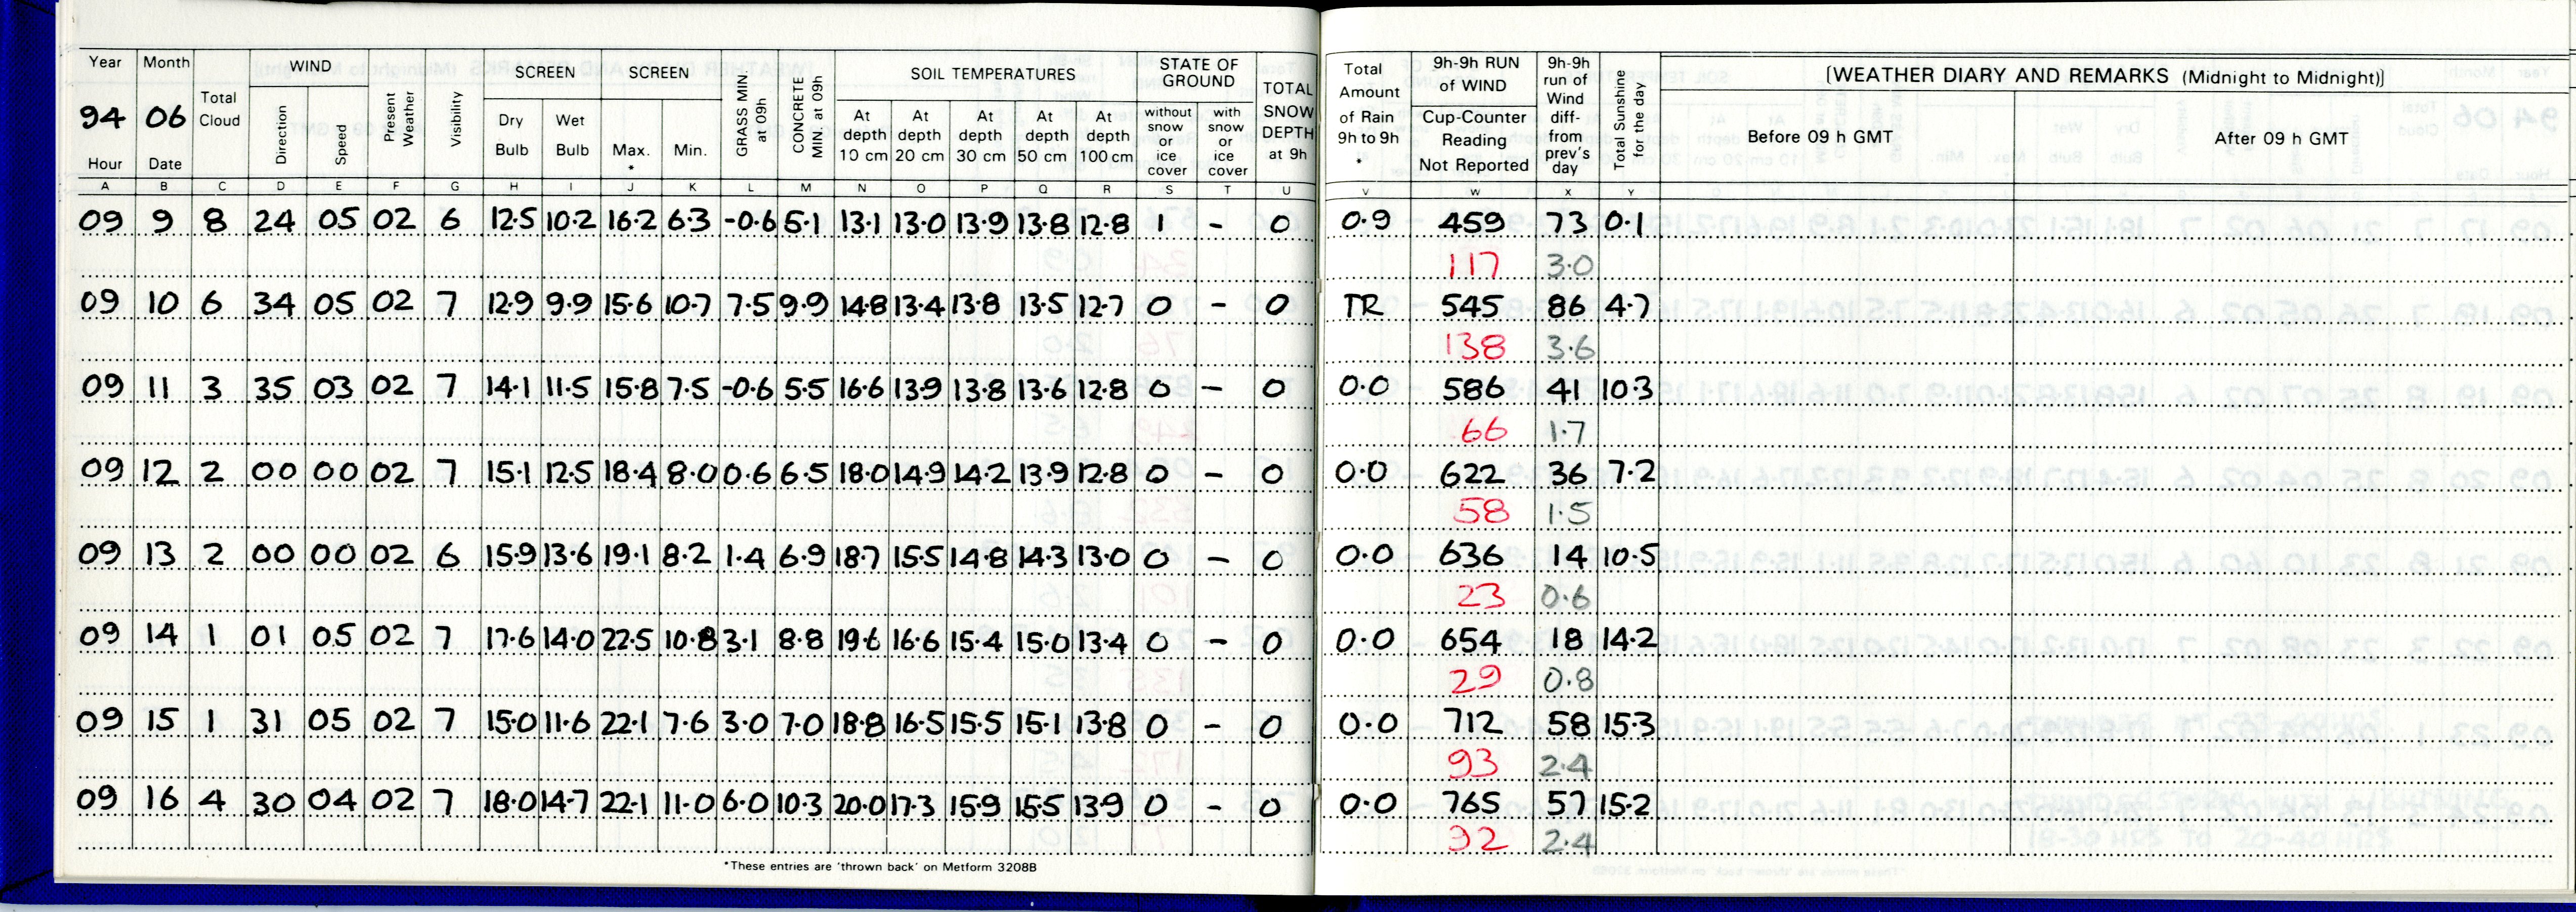 Year Month WIND SCREEN SCREEN SOIL TEMPERATURES STATE OF GROUND
94 06 Total Cloud Direction Speed Present Weather Visibility Dry Bulb Wet Bulb Max. * Min. GRASS MIN at 09h CONCRETE MIN. at 09h At depth 10 cm At depth 20 cm At depth 30 cm At depth 50 cm At depth 100 cm without snow or ice cover with snow or ice cover TOTAL SNOW DEPTH at 9h
Hour Date
A B C D E F G H I J K L M N O P Q R S T U
09 9 8 24 05 02 6 12.5 10.2 16.2 6.3 -0.6 5.1 13.1 13.0 13.9 13.8 12.8 1 - 0
09 10 6 34 05 02 7 12.9 9.9 15.6 10.7 7.5 9.9 14.8 13.4 13.8 13.5 12.7 0 - 0
09 11 3 35 03 02 7 14.1 11.5 15.8 7.5 -0.6 5.5 16.6 13.9 13.8 13.6 12.8 0 - 0
09 12 2 00 00 02 7 15.1 12.5 18.4 8.0 0.6 6.5 18.0 14.9 14.2 13.9 12.8 0 - 0
09 13 2 00 00 02 6 15.9 13.6 19.1 8.2 1.4 6.9 18.7 15.5 14.8 14.3 13.0 0 - 0
09 14 1 01 05 02 7 17.6 14.0 22.5 10.8 3.1 8.8 19.6 16.6 15.4 15.0 13.4 0 - 0
09 15 1 31 05 02 7 15.0 11.6 22.1 7.6 3.0 7.0 18.8 16.5 15.5 15.1 13.8 0 - 0
09 16 4 30 04 02 7 18.0 14.7 22.1 11.0 6.0 10.3 20.0 17.3 15.9 15.5 13.9 0 - 0
*These entries are 'thrown back' on Metform 3208B
Total Amount of Rain 9h to 9h * 9h-9h RUN of WIND Cup-Counter Reading Not Reported 9h-9h run of Wind diff- from prev's day Total Sunshine for the day [WEATHER DIARY AND REMARKS (Midnight to Midnight)]
Before 09 h GMT After 09 h GMT
V W X Y
0.9 459 73 0.1
117 3.0
TR 545 86 4.7
138 3.6
0.0 586 41 10.3
66 1.7
0.0 622 36 7.2
58 1.5
0.0 636 14 10.5
23 0.6
0.0 654 18 14.2
29 0.8
0.0 712 58 15.3
93 2.4
0.0 765 57 15.2
92 2.4